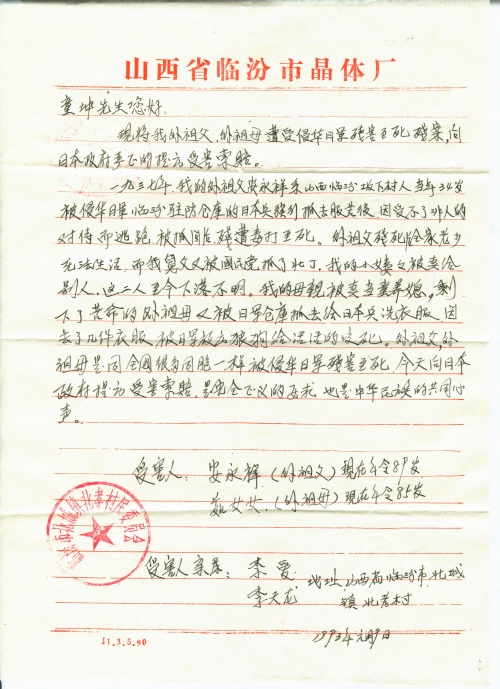 山西省临汾市晶体厂
童坤先生您好
现将我外祖父、外祖母遭受侵华日军残害至死 残案，向
日本政府 提出受害索赔。
一九三七年，我的外祖父安永祥系山西临汾坂下村人 当年34岁
被侵华日军临汾驻防仓库的日本兵 抓去服苦役，因受不了非人的
对待而逃跑，被抓回后残遭毒打至死。外祖父残死后全家老少
无法生活，而我舅父又被国民党抓了壮丁，我的小姨又被卖给
别人，这二人至今下落不明。我的母亲被卖当童养媳。剩
下了苦命的外祖母又被日军仓库抓去给日本兵洗衣服，因
丢了几件衣服，被日军放出狼狗给活活的咬死。外祖父、外
祖母是同全国很多同胞一样被侵华日军残害至死，今天向日本
政府提出受害索赔，是 正义的要求，也是中华民族的共同心
声。
受害人：安永祥（外祖父）现在年令89岁
茹女女（外祖母）现在年令85岁
受害人亲属：李爱 地址山西省临汾市北城
李天龙 镇北孝村
1993年 月 日
村民委员会
J1.3.5.90